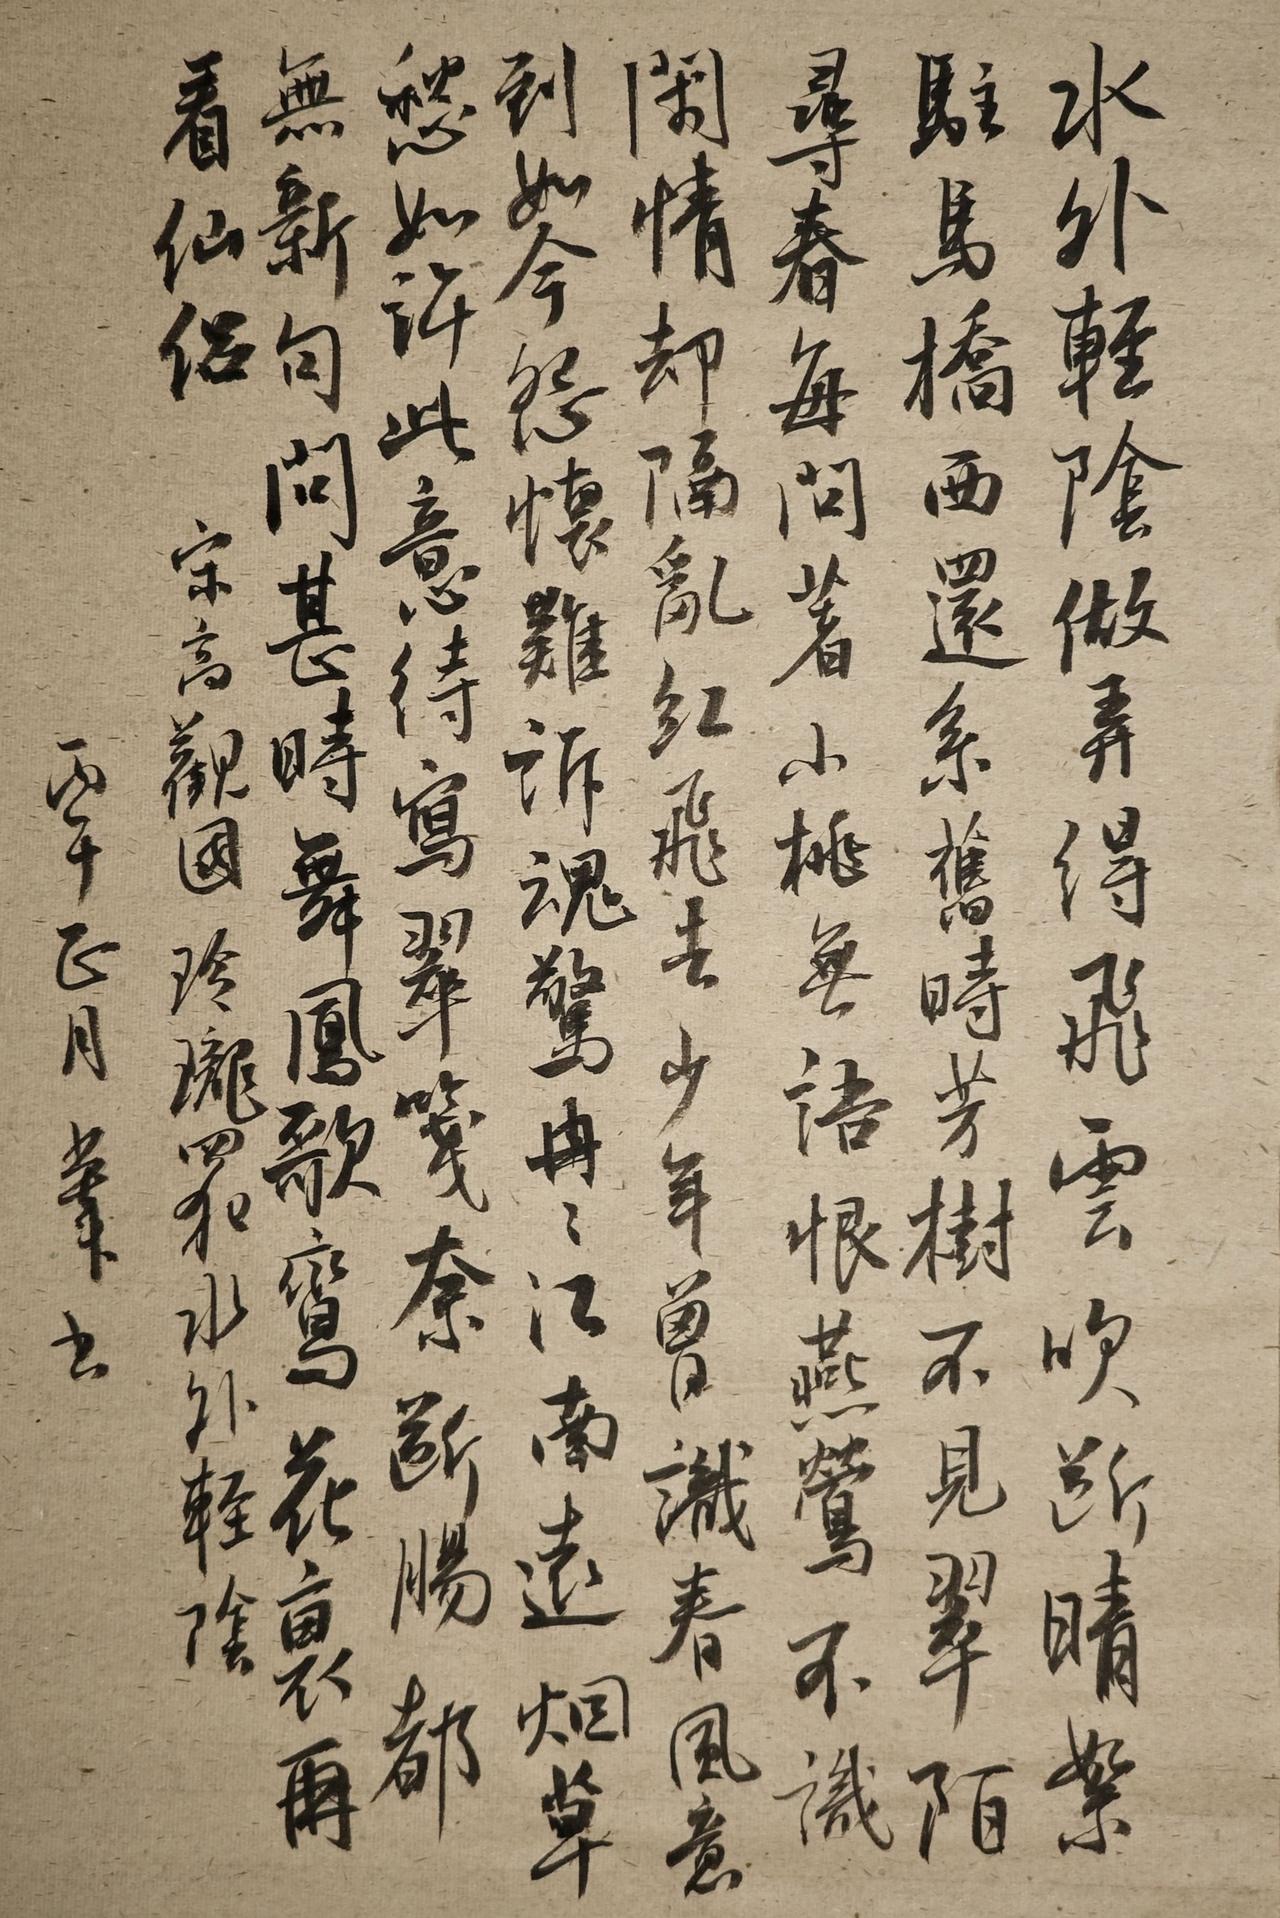 水外輕陰做弄得飛雲吹斷晴絮
駐馬橋西還系舊時芳樹不見翠陌
尋春每問著小桃無語恨燕鶯不識
閑情却隔亂紅飛去少年曾識春風意
到如今怨懷難訴魂驚冉〻江南遠烟草
愁如許此意待寫翠箋奈斷腸都
無新句問甚時舞鳳歌鸞花裏再
看仙侶 宋高觀國 玲瓏四犯水外輕陰
丙午正月書